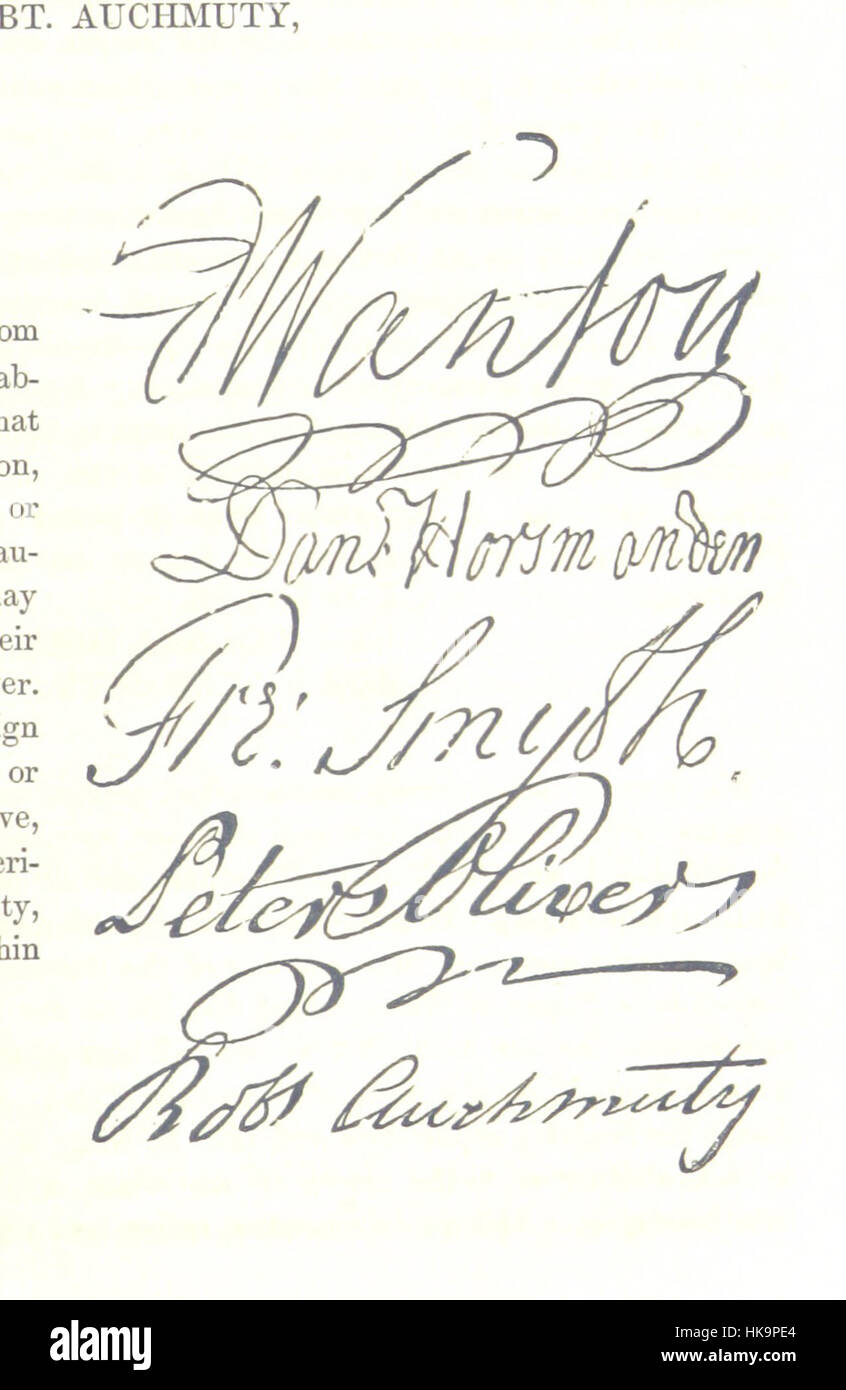 BT. AUCHMUTY,
om
ab-
hat
on,
or
au-
lay
eir
er.
ign
or
ve,
eri-
ty,
hin
JWanton
Danl. Horsmanden
Fre: Smyth.
Peter Oliver
Robt Auchmuty
alamy
Image ID: HK9PE4
www.alamy.com